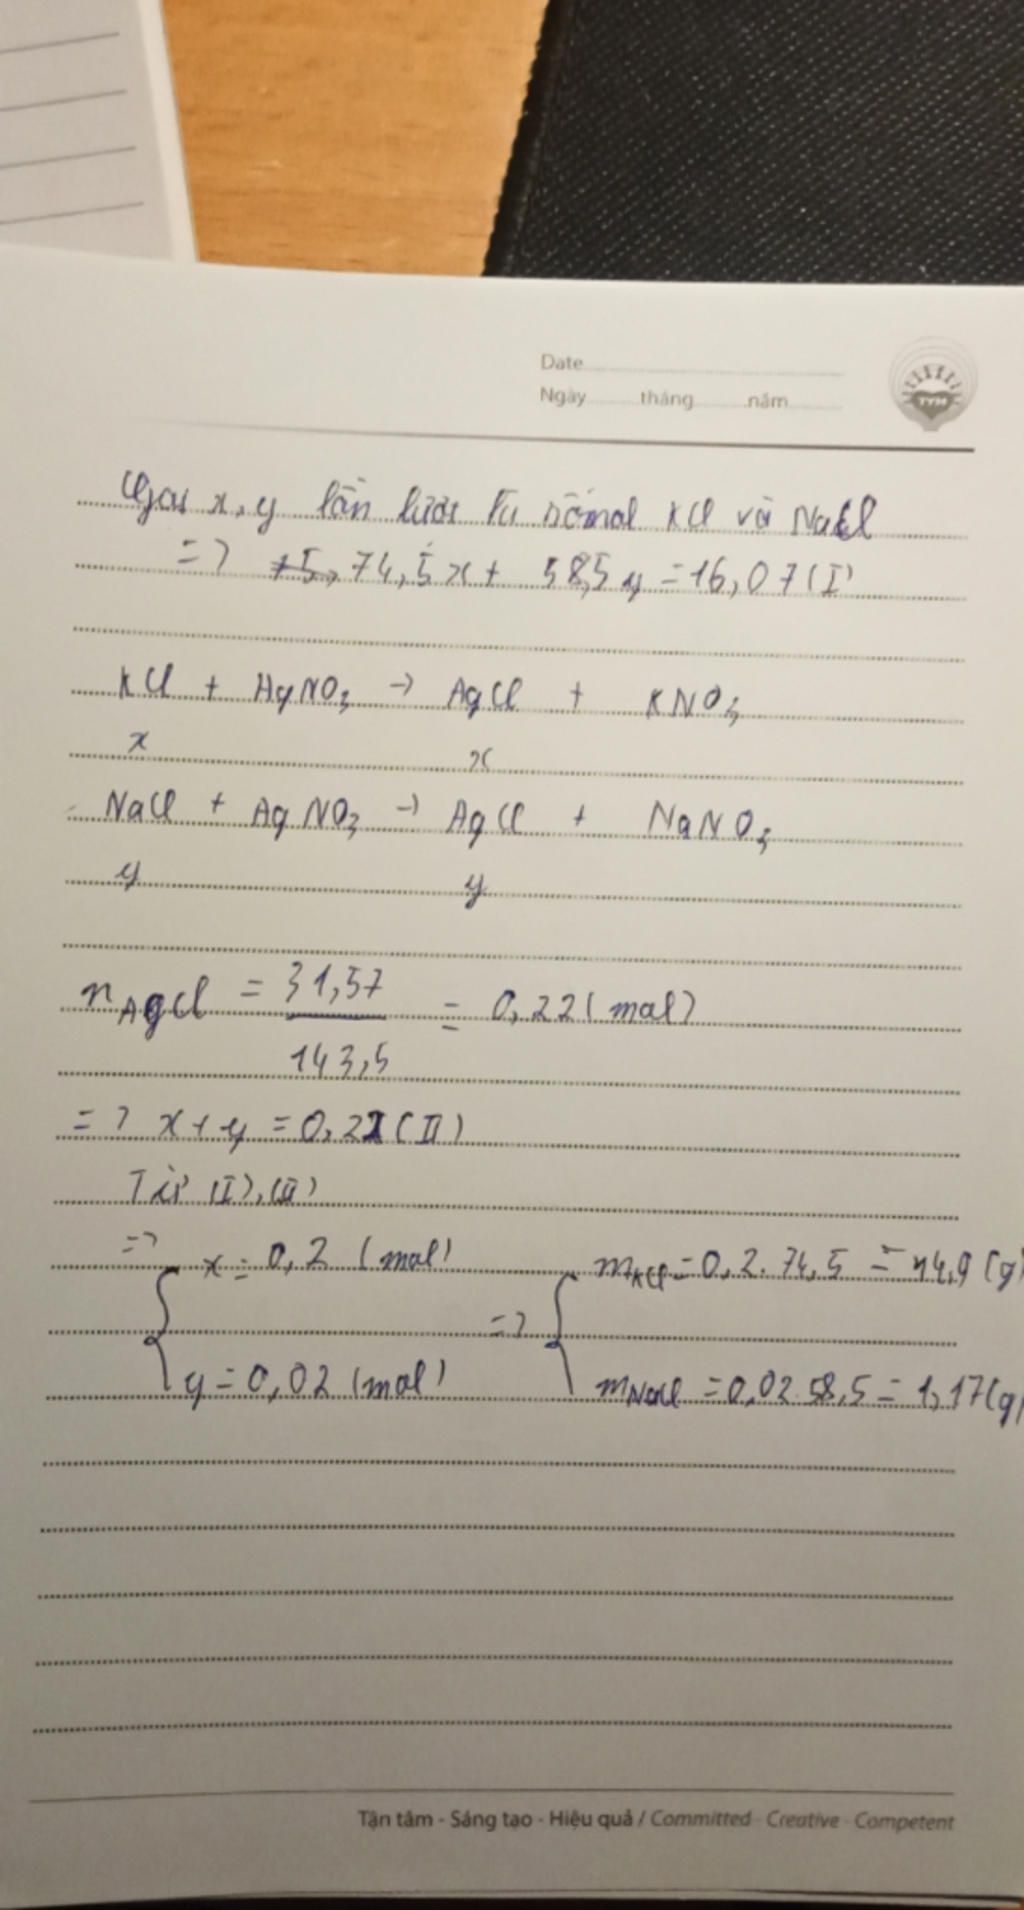 Date
Ngày tháng năm
TYM
Gọi x, y lần lượt là số mol KCl và NaCl
=> 74,5x + 58,5y = 16,07 (I)
KCl + AgNO3 → AgCl + KNO3
x x
NaCl + AgNO3 → AgCl + NaNO3
y y
nAgCl = 31,57 / 143,5 = 0,22 (mol)
=> x + y = 0,22 (II)
Từ (I), (II)
=> x = 0,2 (mol) => mKCl = 0,2 . 74,5 = 14,9 (g)
y = 0,02 (mol) mNaCl = 0,02 . 58,5 = 1,17 (g)
Tận tâm - Sáng tạo - Hiệu quả / Committed - Creative - Competent